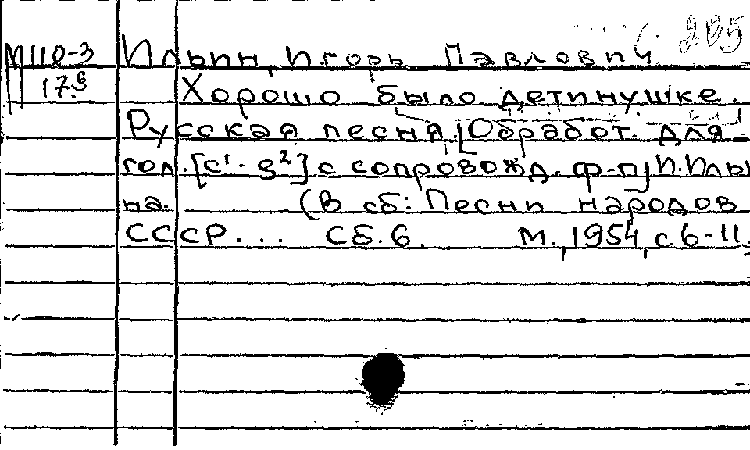 М110-3 Ильин, Игорь Павлович
17.9 Хорошо было детинушке.
Русская песня. [Обработ. для
гол. [c¹-g²] с сопровожд. ф-п] И. Ильи
на. (В сб: Песни народов
СССР... Сб. 6. М., 1954, с. 6-11.